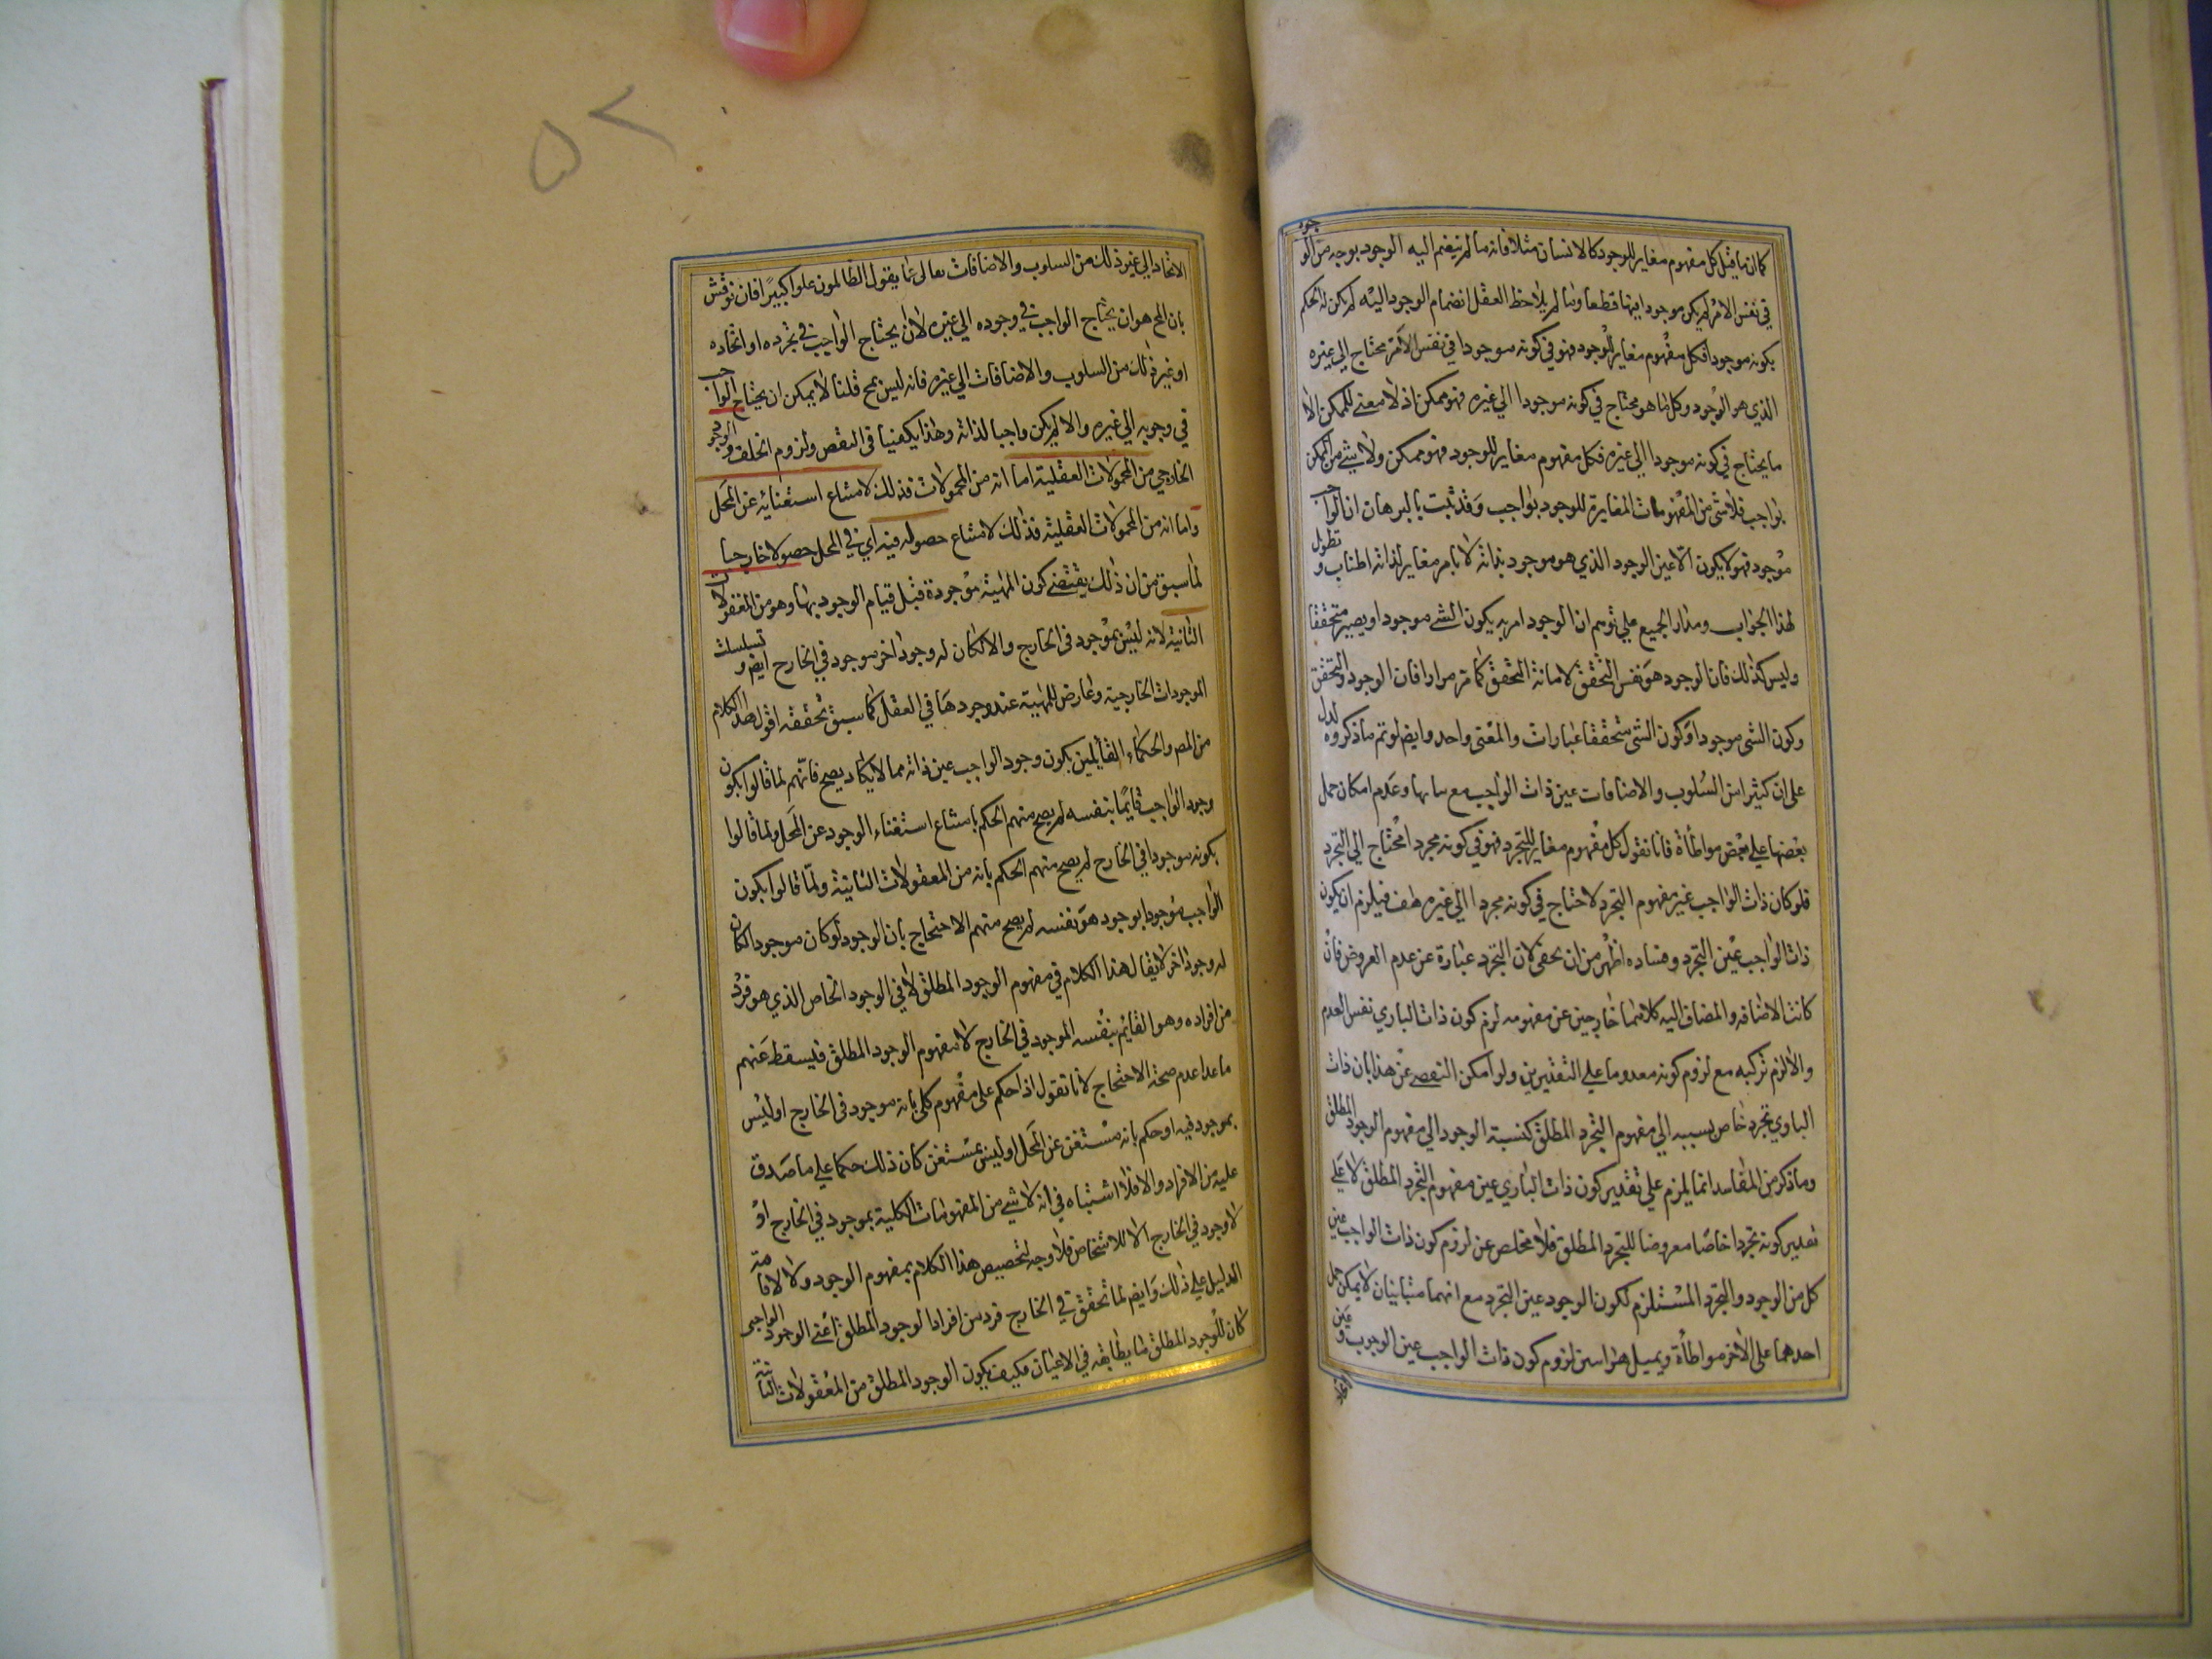 كما ان ما قيل كل مفهوم مغاير للوجود كالانسان مثلا فانه ما لم ينضم اليه الوجود بوجه من الوجوه
في نفس الامر لم يكن موجودا فيها قطعا وما لم يلاحظ العقل انضمام الوجود اليه لم يكن له الحكم
بكونه موجودا فكل مفهوم مغاير للوجود فهو في كونه موجودا في نفس الامر محتاج الي غيره
الذي هو الوجود وكل ما هو محتاج في كونه موجودا الي غيره فهو ممكن اذ لا معني للممكن الا
ما يحتاج في كونه موجودا الي غيره فكل مفهوم مغاير للوجود فهو ممكن ولا شي من الممكن
بواجب فلا شي من المفهومات المغايرة للوجود بواجب وقد ثبت بالبرهان ان الواجب
موجود فهو لا يكون الا عين الوجود الذي هو موجود بذاته لا بامر مغاير لذاته اطناب وتطويل
لهذا الجواب ومدار الجميع علي توهم ان الوجود امر به يكون الشي موجودا ويصير متحققا
وليس كذلك فان الوجود هو نفس التحقق لا ما به التحقق كما مر مرارا فان الوجود والتحقق
وكون الشي موجودا وكون الشي متحققا عبارات والمعني واحد وايضا لو تم ما ذكروه لدل
علي ان كثيرا من السلوب والاضافات عين ذات الواجب مع تباينها وعدم امكان حمل
بعضها علي بعض مواطأة فانا نقول كل مفهوم مغاير للتجرد فهو في كونه مجردا محتاج الي التجرد
فلو كان ذات الواجب غير مفهوم التجرد لاحتاج في كونه مجردا الي غيره هف فيلزم ان يكون
ذات الواجب عين التجرد وفساده اظهر من ان يخفي لان التجرد عبارة عن عدم العروض فان
كانت الاضافة والمضاف اليه كلاهما خارجين عن مفهومه لزم كون ذات الباري نفس العدم
والا لزم تركبه مع لزوم كونه معدوما علي التقديرين ولو امكن التفصي عن هذا بان ذات
الباري تجرد خاص نسبته الي مفهوم التجرد المطلق كنسبة الوجود الي مفهوم الوجود المطلق
وما ذكر من المفاسد انما يلزم علي تقدير كون ذات الباري عين مفهوم التجرد المطلق لا علي
تقدير كونه تجردا خاصا معروضا للتجرد المطلق فلا مخلص عن لزوم كون ذات الواجب عين
كل من الوجود والتجرد المستلزم لكون الوجود عين التجرد مع انهما متباينان لا يمكن حمل
احدهما علي الاخر مواطأة وبمثل هذا لزوم كون ذات الواجب عين الوجوب وعين
٥٢
الاتحاد الي غير ذلك من السلوب والاضافات تعالي عما يقول الظالمون علوا كبيرا فان نوقش
بان المح هو ان يحتاج الواجب في وجوده الي غيره لا ان يحتاج الواجب في تجرده او اتحاده
او غير ذلك من السلوب والاضافات الي غيره فانه ليس بمح قلنا لا يمكن ان يحتاج الواجب
في وجوبه الي غيره والا لم يكن واجبا لذاته وهذا يكفينا في النقض ولزوم الخلف والوجود
الخارجي من المحمولات العقلية اما انه من المحمولات فذلك لامتناع استغنائه عن المحل
واما انه من المحمولات العقلية فذلك لامتناع حصوله فيه اي في المحل حصولا خارجيا
لما سبق من ان ذلك يقتضي كون المهية موجودة قبل قيام الوجود بها وهو من المعقولات
الثانية لانه ليس بموجود في الخارج والا لكان له وجود اخر موجود في الخارج ايضا وتسلسلت
الموجودات الخارجية وعارض للمهية عند وجودها في العقل كما سبق تحقيقه اقول هذا الكلام
من المص والحكماء القايلين بكون وجود الواجب عين ذاته مما لا يكاد يصح فانهم لما قالوا بكون
وجود الواجب قايما بنفسه لم يصح منهم الحكم بامتناع استغناء الوجود عن المحل ولما قالوا
بكونه موجودا في الخارج لم يصح منهم الحكم بانه من المعقولات الثانية ولما قالوا بكون
الواجب موجودا بوجود هو نفسه لم يصح منهم الاحتجاج بان الوجود لو كان موجودا لكان
له وجود اخر لا يقال هذا الكلام في مفهوم الوجود المطلق لا في الوجود الخاص الذي هو فرد
من افراده وهو القايم بنفسه الموجود في الخارج لا مفهوم الوجود المطلق فليسقط عنهم
ما عدا عدم صحة الاحتجاج لانا نقول اذا حكم علي مفهوم كلي بانه موجود في الخارج او ليس
بموجود فيه او حكم بانه مستغن عن المحل او ليس بمستغن كان ذلك حكما علي ما صدق
عليه من الافراد والا فلا اشتباه في انه لا شي من المفهومات الكلية بموجود في الخارج او
لا وجود في الخارج الا للاشخاص فلا وجه لتخصيص هذا الكلام بمفهوم الوجود ولا لاقامة
الدليل علي ذلك وايضا لما تحقق في الخارج فرد من افراد الوجود المطلق اعني الوجود الواجبي
كان للوجود المطلق ما يطابقه في الاعيان فكيف يكون الوجود المطلق من المعقولات الثانية